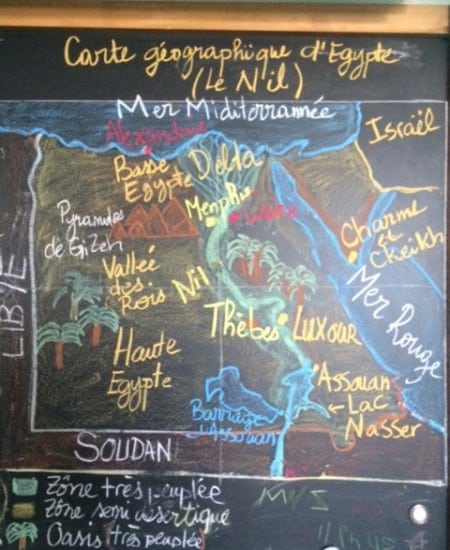 Carte géographique d'Egypte
(Le Nil)
Mer Miditerrannée
Alexandrie
Israël
Basse
Egypte
Delta
Memphis
Pyramides
de Gizeh
Charme
et
Ckeikh
Vallée
des Rois
Nil
Mer Rouge
LIBYE
Thèbes
Luxour
Haute
Egypte
Assouan
← Lac
Nasser
Barrage
d'Assouan
SOUDAN
Zône très peuplée
Zône semi désertique
Oasis très peuplée